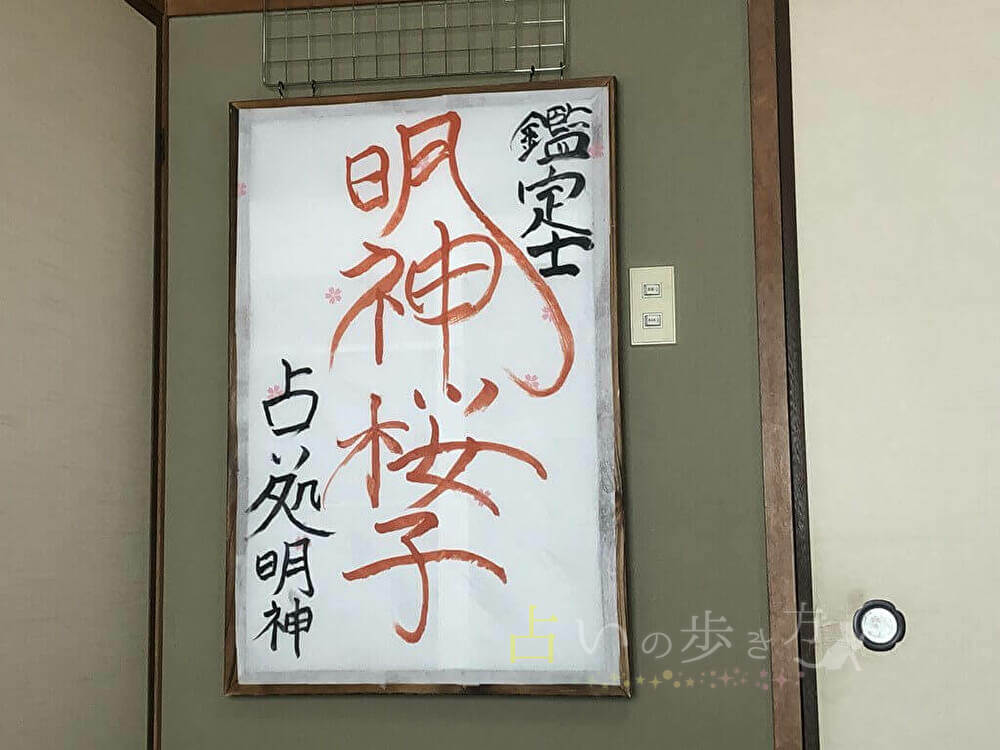 鑑定士
明神桜子
占い処明神
占いの歩き方